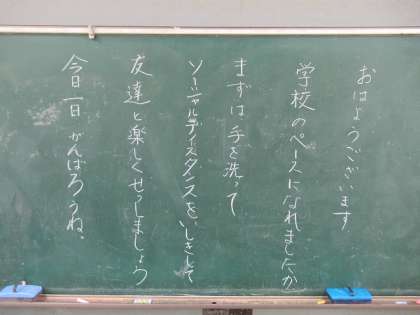 おはようございます
学校のペースになれましたか
まずは手を洗って
ソーシャルディスタンスをいしきして
友達と楽しくせっしましょう
今日一日がんばろうね。